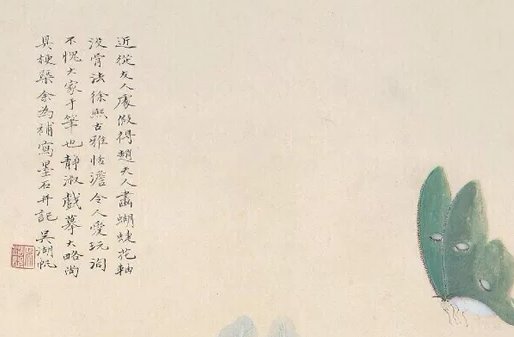 近從友人處假得趙夫人畫蝴蝶花軸
没骨法徐熙古雅恬澹令人愛玩洵
不愧大家手筆也静淑戲摹大略尚
具梗槩余為補寫墨石并記 吴湖帆